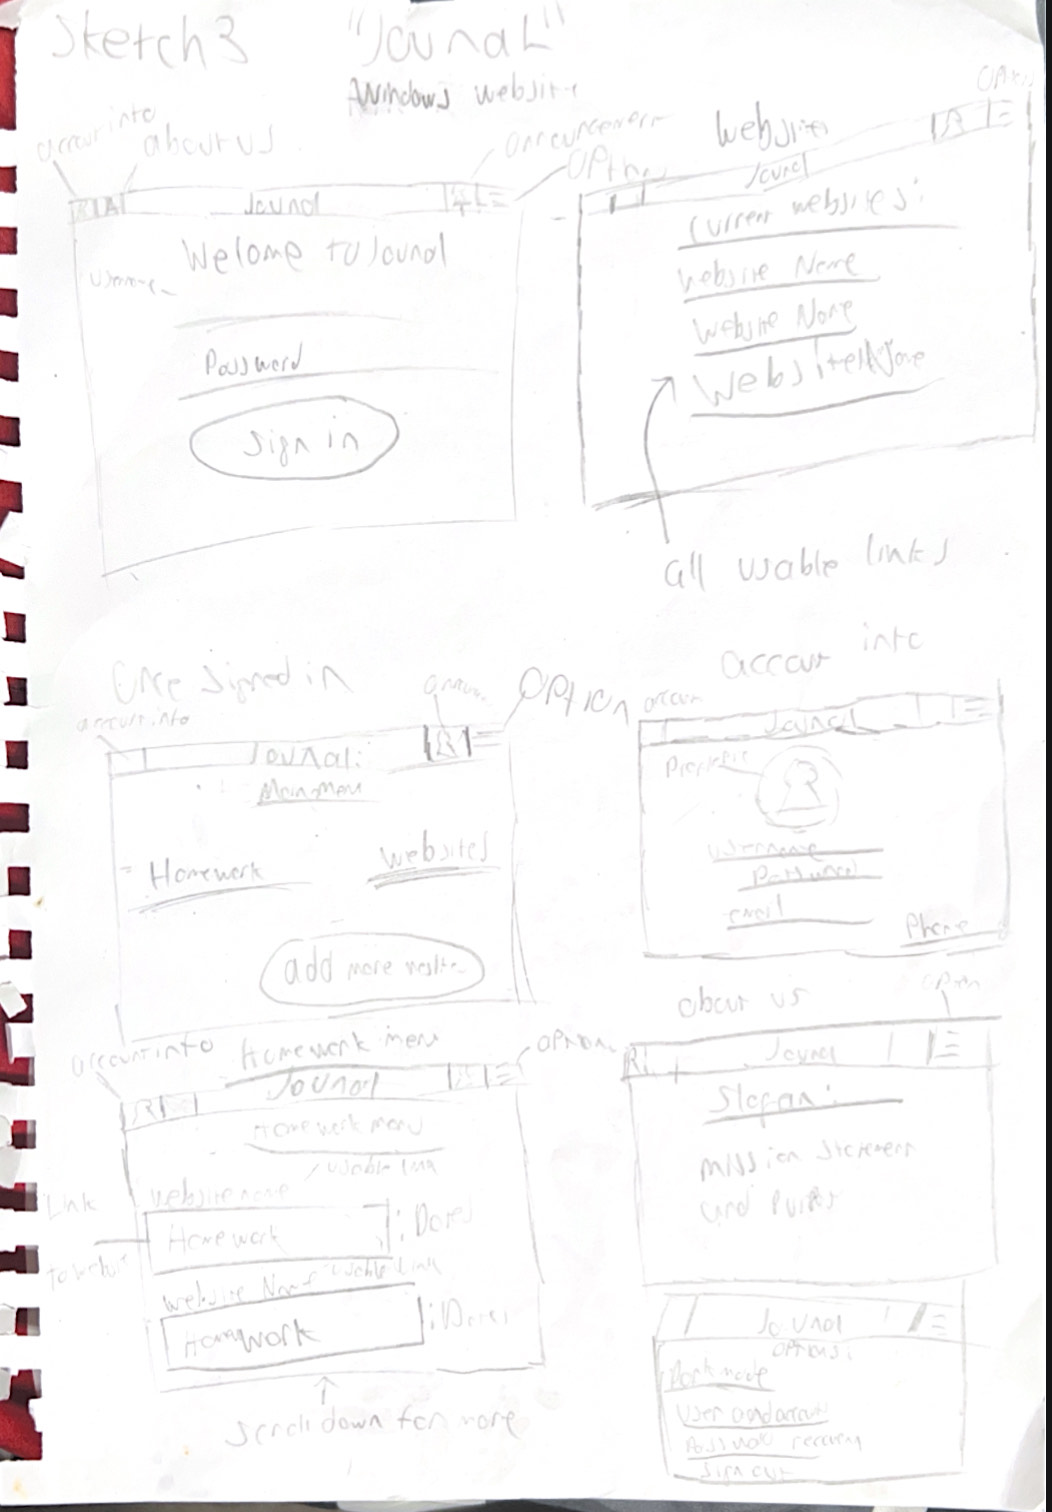 Sketch3 "Jounal"
Windows website
account into
about us
announcement
Option
Jounal
Welcome to Jounal
Username
Password
Sign in
Website
Option
Jounal
Current websites:
Website Name
Website Name
Website Name
all usable links
Once signed in
account into
Option
Jounal:
Main Menu
Homework
Websites
add more
account into
account
Jounal
Username
Password
email
Phone
account into
Homework menu
Option
Jounal
Homework menu
usable link
website name
Link
Homework
: Dates
to website
Website Name usable link
Homework
: Dates
Scroll down for more
about us
option
Jounal
Slogan:
mission statement
and
Jounal
options:
Dark mode
User and account
Password recovery
sign out